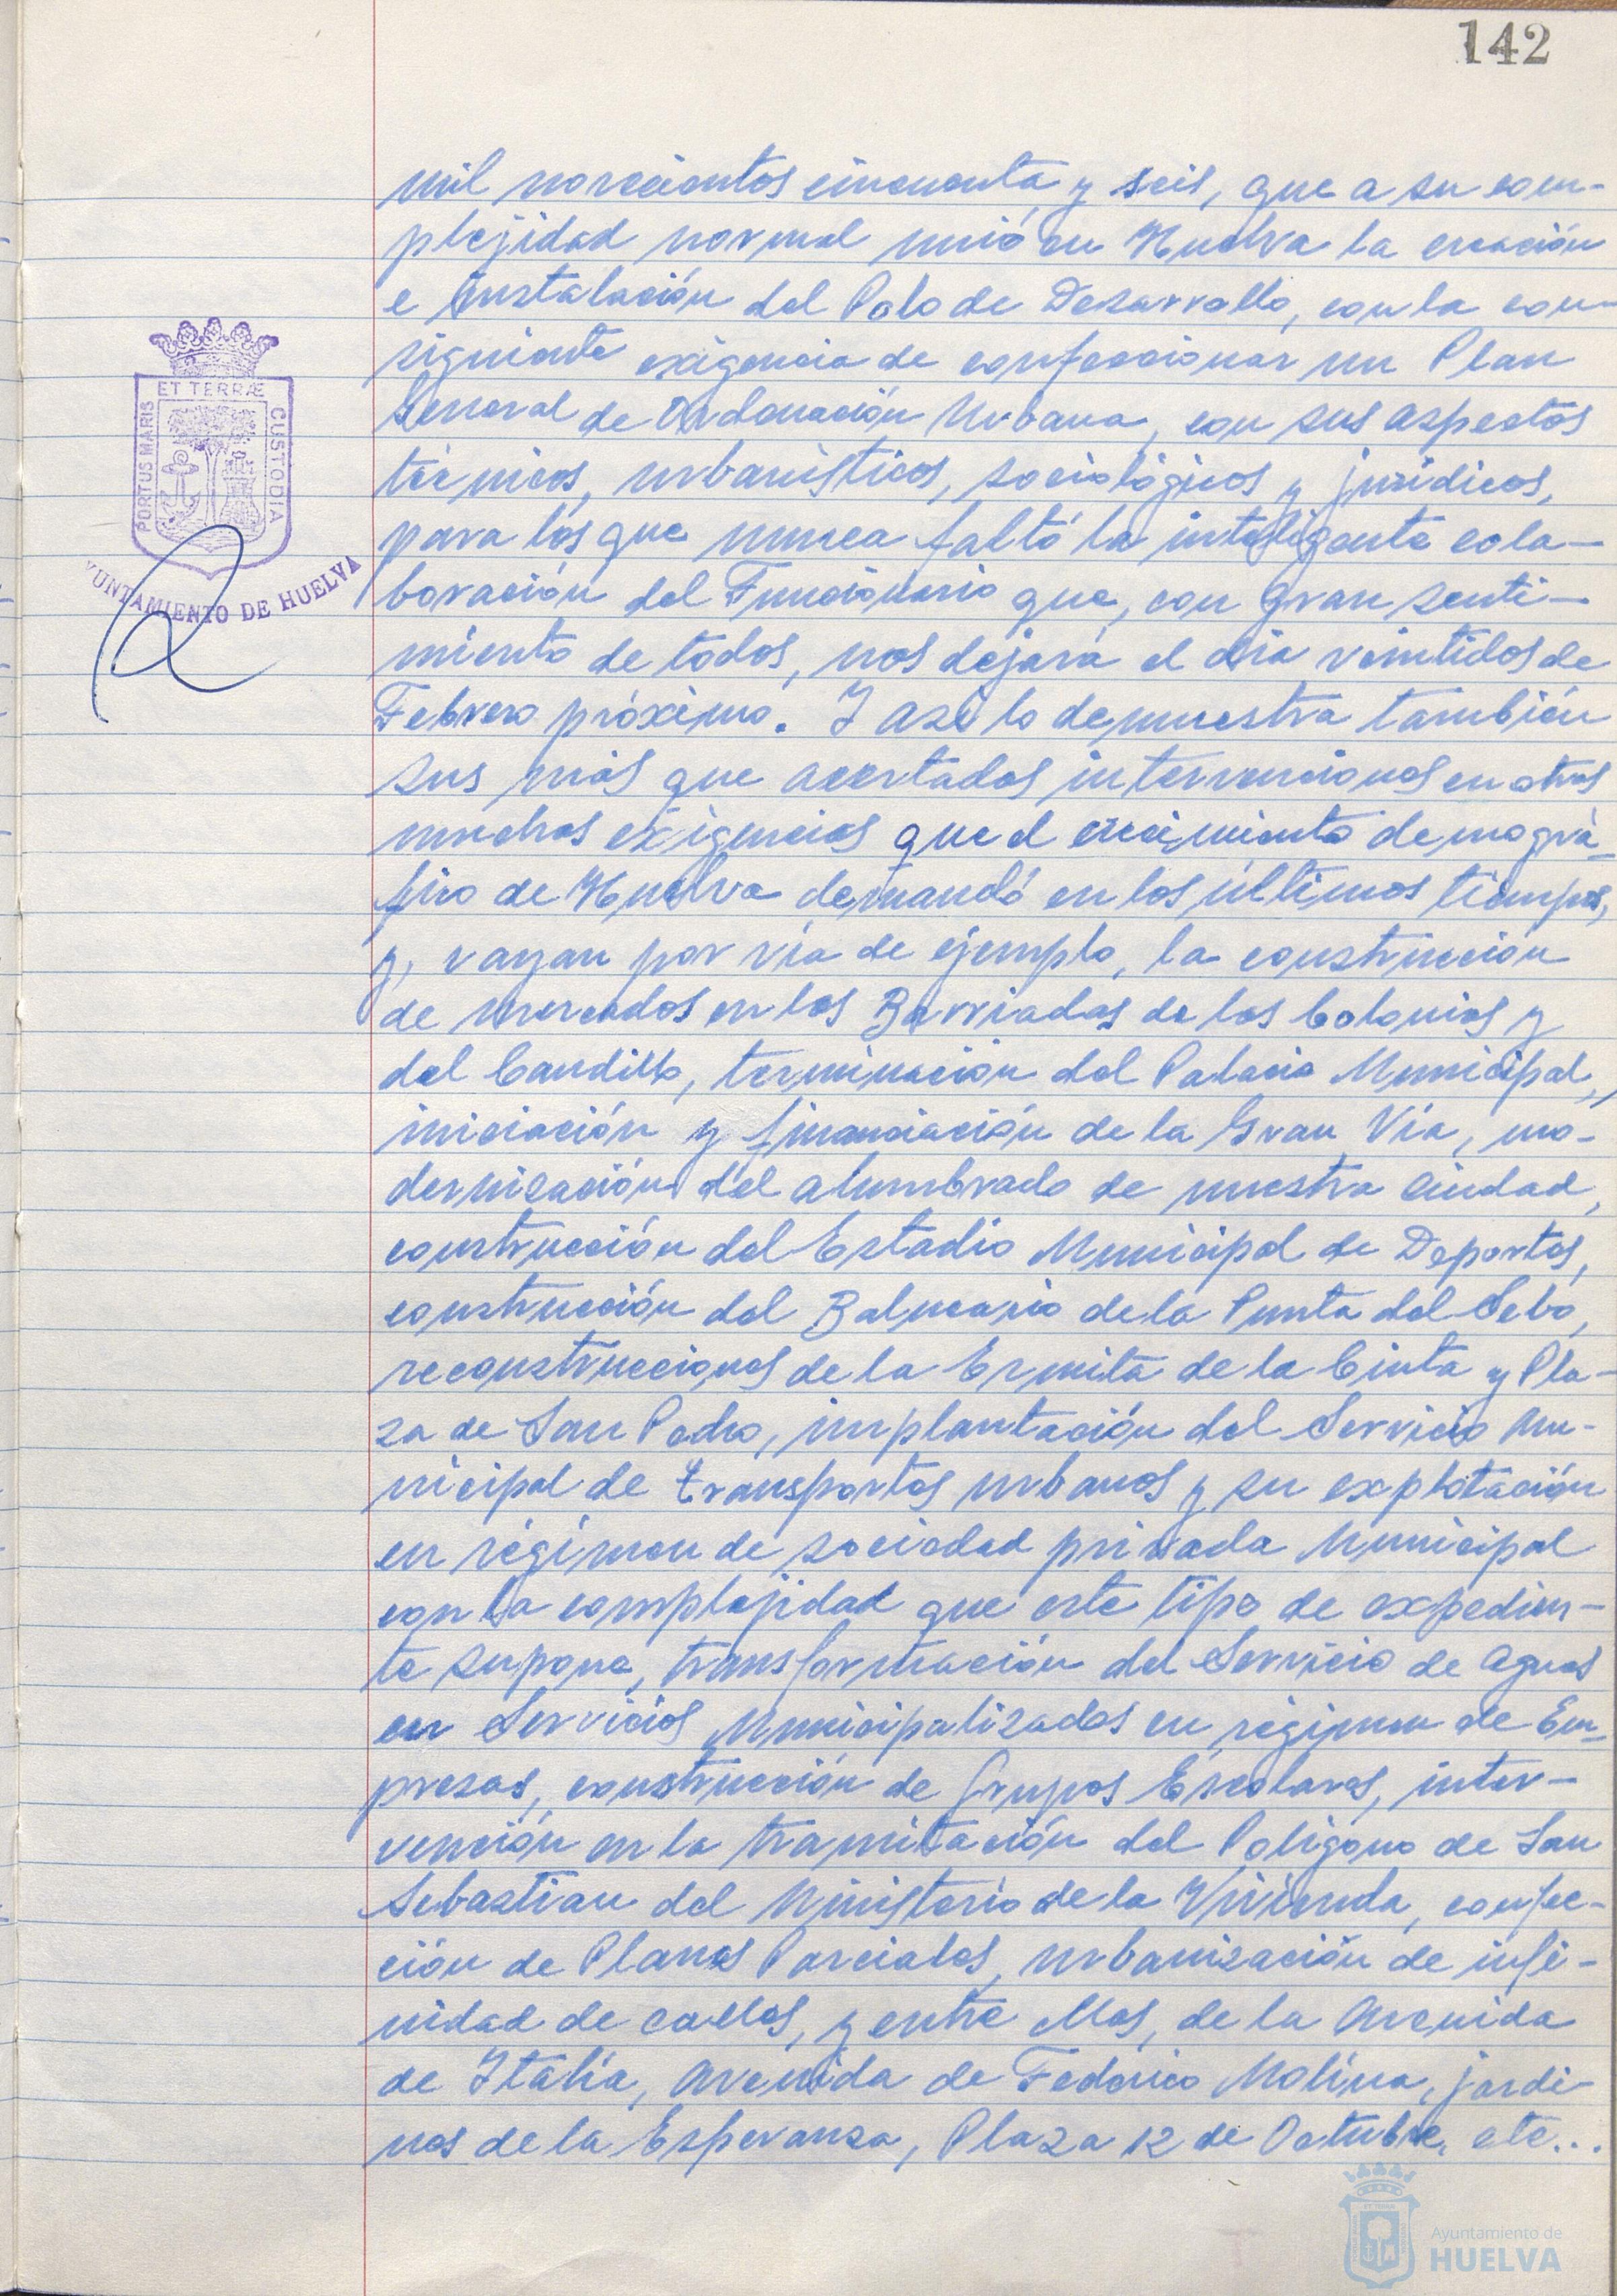 142
mil novecientos cincuenta y seis, que a su com-
plejidad normal unió en Huelva la creación
e instalación del Polo de Desarrollo, con la con-
siguiente exigencia de confeccionar un Plan
General de Ordenación Urbana, con sus aspectos
técnicos, urbanísticos, sociológicos y jurídicos,
para los que nunca faltó la inteligente cola-
boración del Funcionario que, con gran senti-
miento de todos, nos dejará el día veintidos de
Febrero próximo. Y asi lo demuestra también
sus más que acertadas intervenciones en otras
muchas exigencias que el crecimiento demográ-
fico de Huelva demandó en los últimos tiempos,
y, vayan por vía de ejemplo, la construcción
de mercados en las Barriadas de las Colonias y
del Caudillo, terminación del Palacio Municipal,
iniciación y financiación de la Gran Vía, mo-
dernización del alumbrado de nuestra ciudad,
construcción del Estadio Municipal de Deportes,
construcción del Balneario de la Punta del Sebo,
reconstrucciones de la Ermita de la Cinta y Pla-
za de San Pedro, implantación del Servicio Mu-
nicipal de transportes urbanos y su explotación
en régimen de sociedad privada Municipal
con la complejidad que este tipo de expedien-
te supone, transformación del Servicio de aguas
en Servicios Municipalizados en régimen de Em-
presas, construcción de Grupos Escolares, inter-
vención en la tramitación del Polígono de San
Sebastian del Ministerio de la Vivienda, confec-
ción de Planes Parciales, urbanización de infi-
nidad de calles, y entre ellas, de la Avenida
de Italia, Avenida de Federico Molina, jardi-
nes de la Esperanza, Plaza 12 de Octubre, etc...
PORTUS MARIS
ET TERRÆ
CUSTODIA
YUNTAMIENTO DE HUELVA
Ayuntamiento de
HUELVA